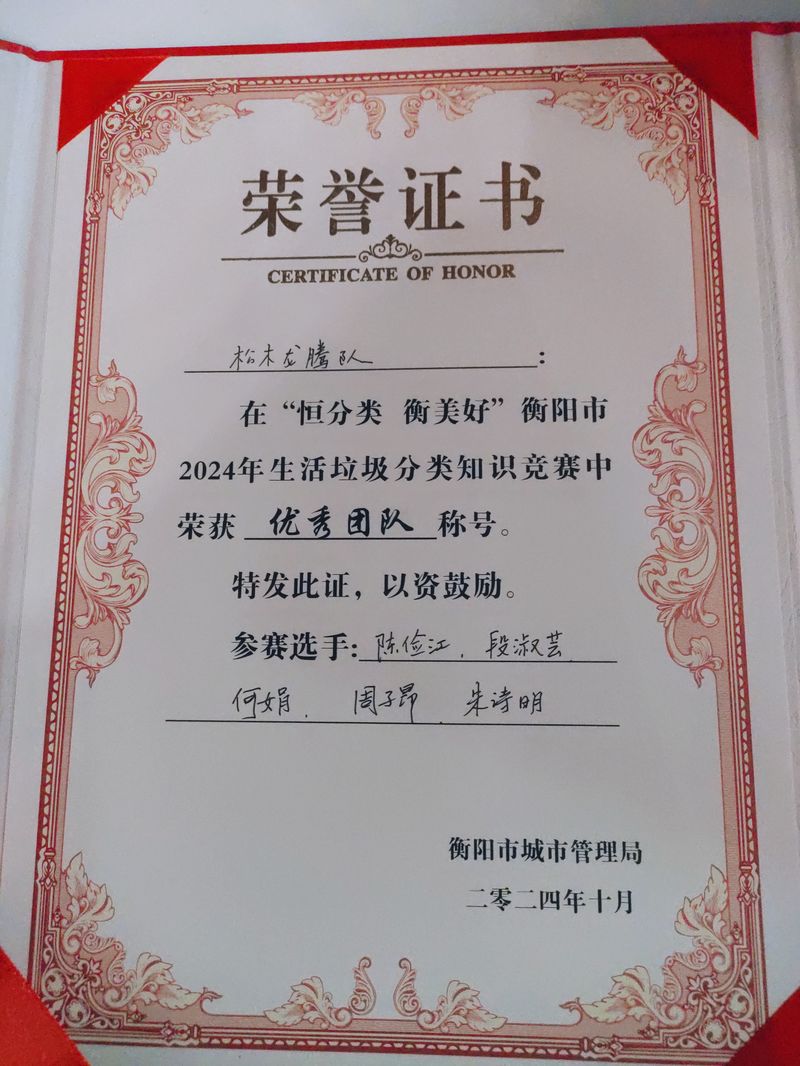 荣誉证书
CERTIFICATE OF HONOR
松木龙腾队：
在“恒分类 衡美好”衡阳市
2024年生活垃圾分类知识竞赛中
荣获 优秀团队 称号。
特发此证，以资鼓励。
参赛选手：陈俭江、段淑芸、
何娟、周子昂、朱诗明
衡阳市城市管理局
二零二四年十月